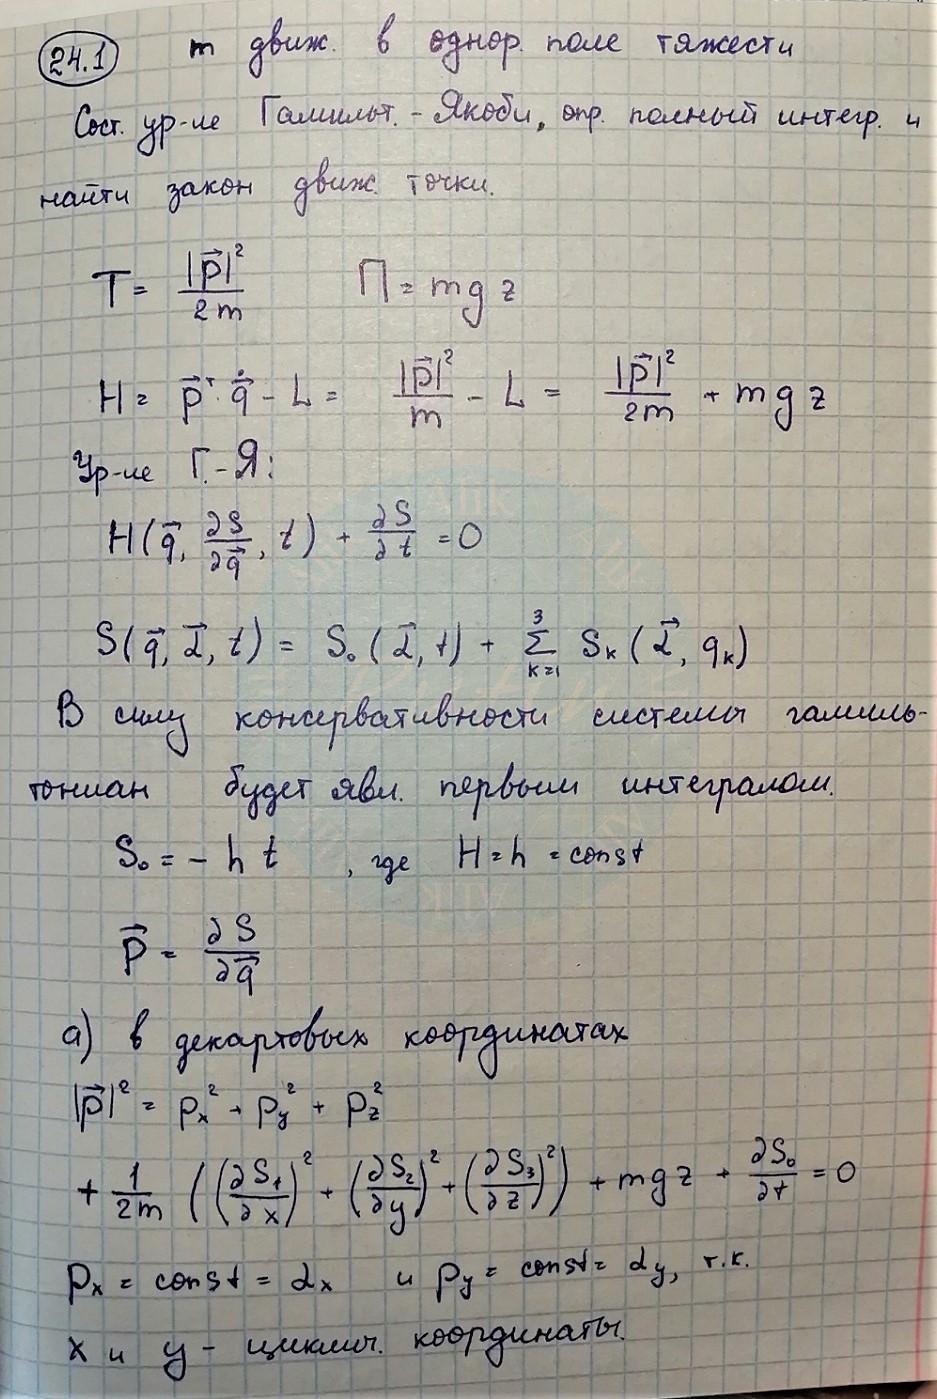 24.1 m движ. в однор. поле тяжести
Сост. ур-ие Гамильт.-Якоби, опр. полный интегр. и
найти закон движ. точки.
T = |p⃗|²/2m Π = mgz
H = p⃗ᵀ·q⃗̇ - L = |p⃗|²/m - L = |p⃗|²/2m + mgz
Ур-ие Г.-Я:
H(q⃗, ∂S/∂q⃗, t) + ∂S/∂t = 0
S(q⃗, α⃗, t) = S₀(α⃗, t) + Σ³ₖ₌₁ Sₖ(α⃗, qₖ)
В силу консервативности системы гамиль-
тониан будет явл. первым интегралом.
S₀ = - h t , где H = h = const
p⃗ = ∂S/∂q⃗
а) в декартовых координатах
|p⃗|² = pₓ² + p_y² + p_z²
+ 1/2m ((∂S₁/∂x)² + (∂S₂/∂y)² + (∂S₃/∂z)²) + mgz + ∂S₀/∂t = 0
pₓ = const = αₓ и p_y = const = α_y, т.к.
x и y - циклич. координаты.